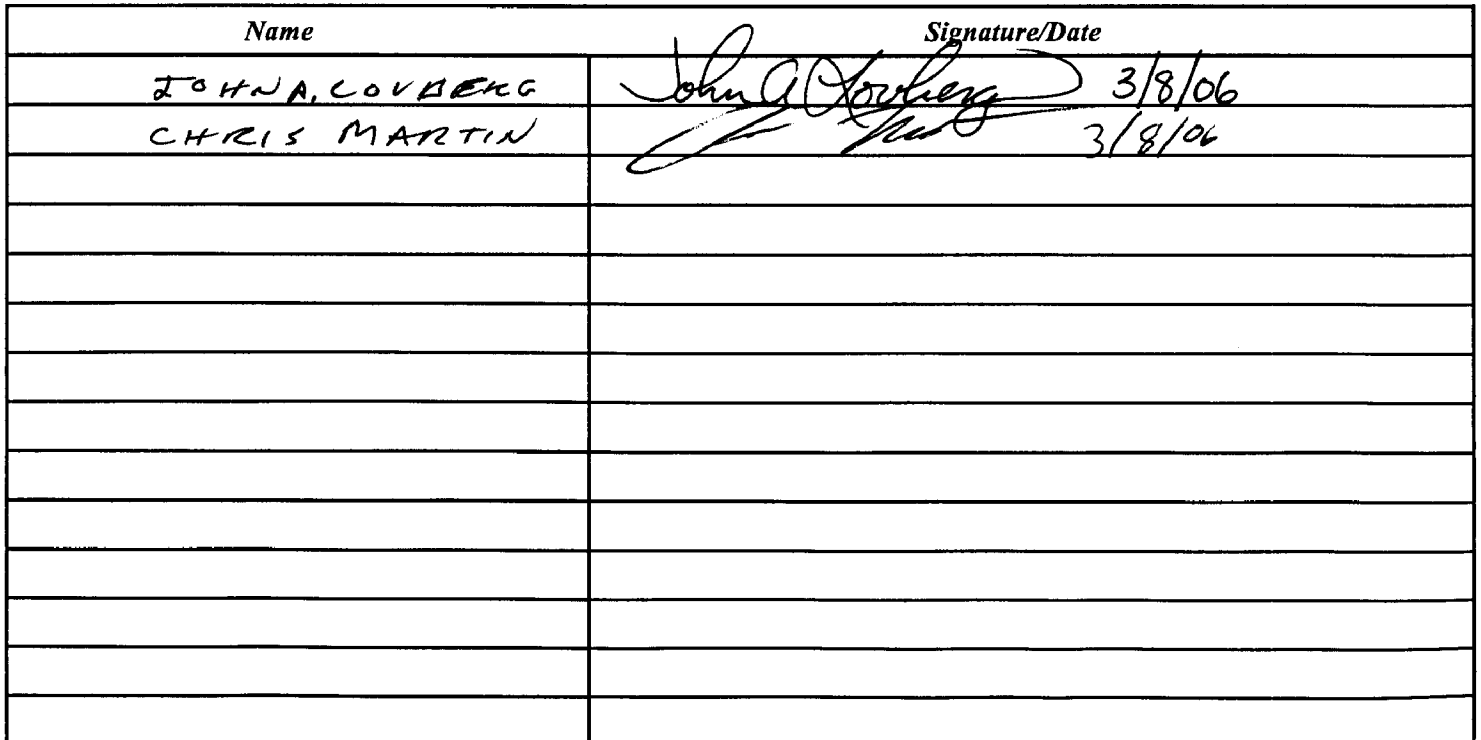 Name Signature/Date
JOHN A. LOVBERG John A Lovberg 3/8/06
CHRIS MARTIN 3/8/06